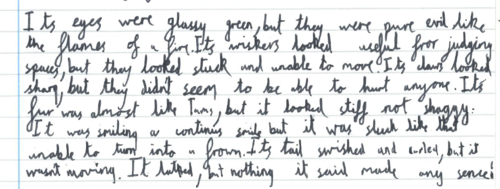 Its eyes were glassy green, but they were pure evil like
the flames of a fire. Its wiskers looked useful fror judging
spaces, but they looked stuck and unable to move. Its claws looked
sharp, but they didn't seem to be able to hurt anyone. Its
fur was almost like Tums, but it looked stiff not shaggy.
It was smiling a continus smile but it was stuck like that
unable to turn into a frown. Its tail swished and curled, but it
wasn't moving. It talked, but nothing it said made any sence.